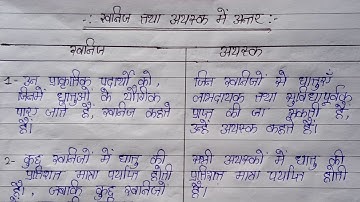 -: खनिज तथा अयस्क में अन्तर :-
खनिज
अयस्क
1- उन प्राकृतिक पदार्थों को,
जिनमें धातुओं के यौगिक
पाए जाते हैं, खनिज कहते
हैं।
जिन खनिजों में धातुएँ
लाभदायक तथा सुविधापूर्वक
प्राप्त की जा सकती हैं,
उन्हें अयस्क कहते हैं।
2- कुछ खनिजों में धातु की
प्रतिशत मात्रा पर्याप्त होती
है, जबकि कुछ खनिजों
सभी अयस्कों में धातु की
प्रतिशत मात्रा पर्याप्त होती
है।